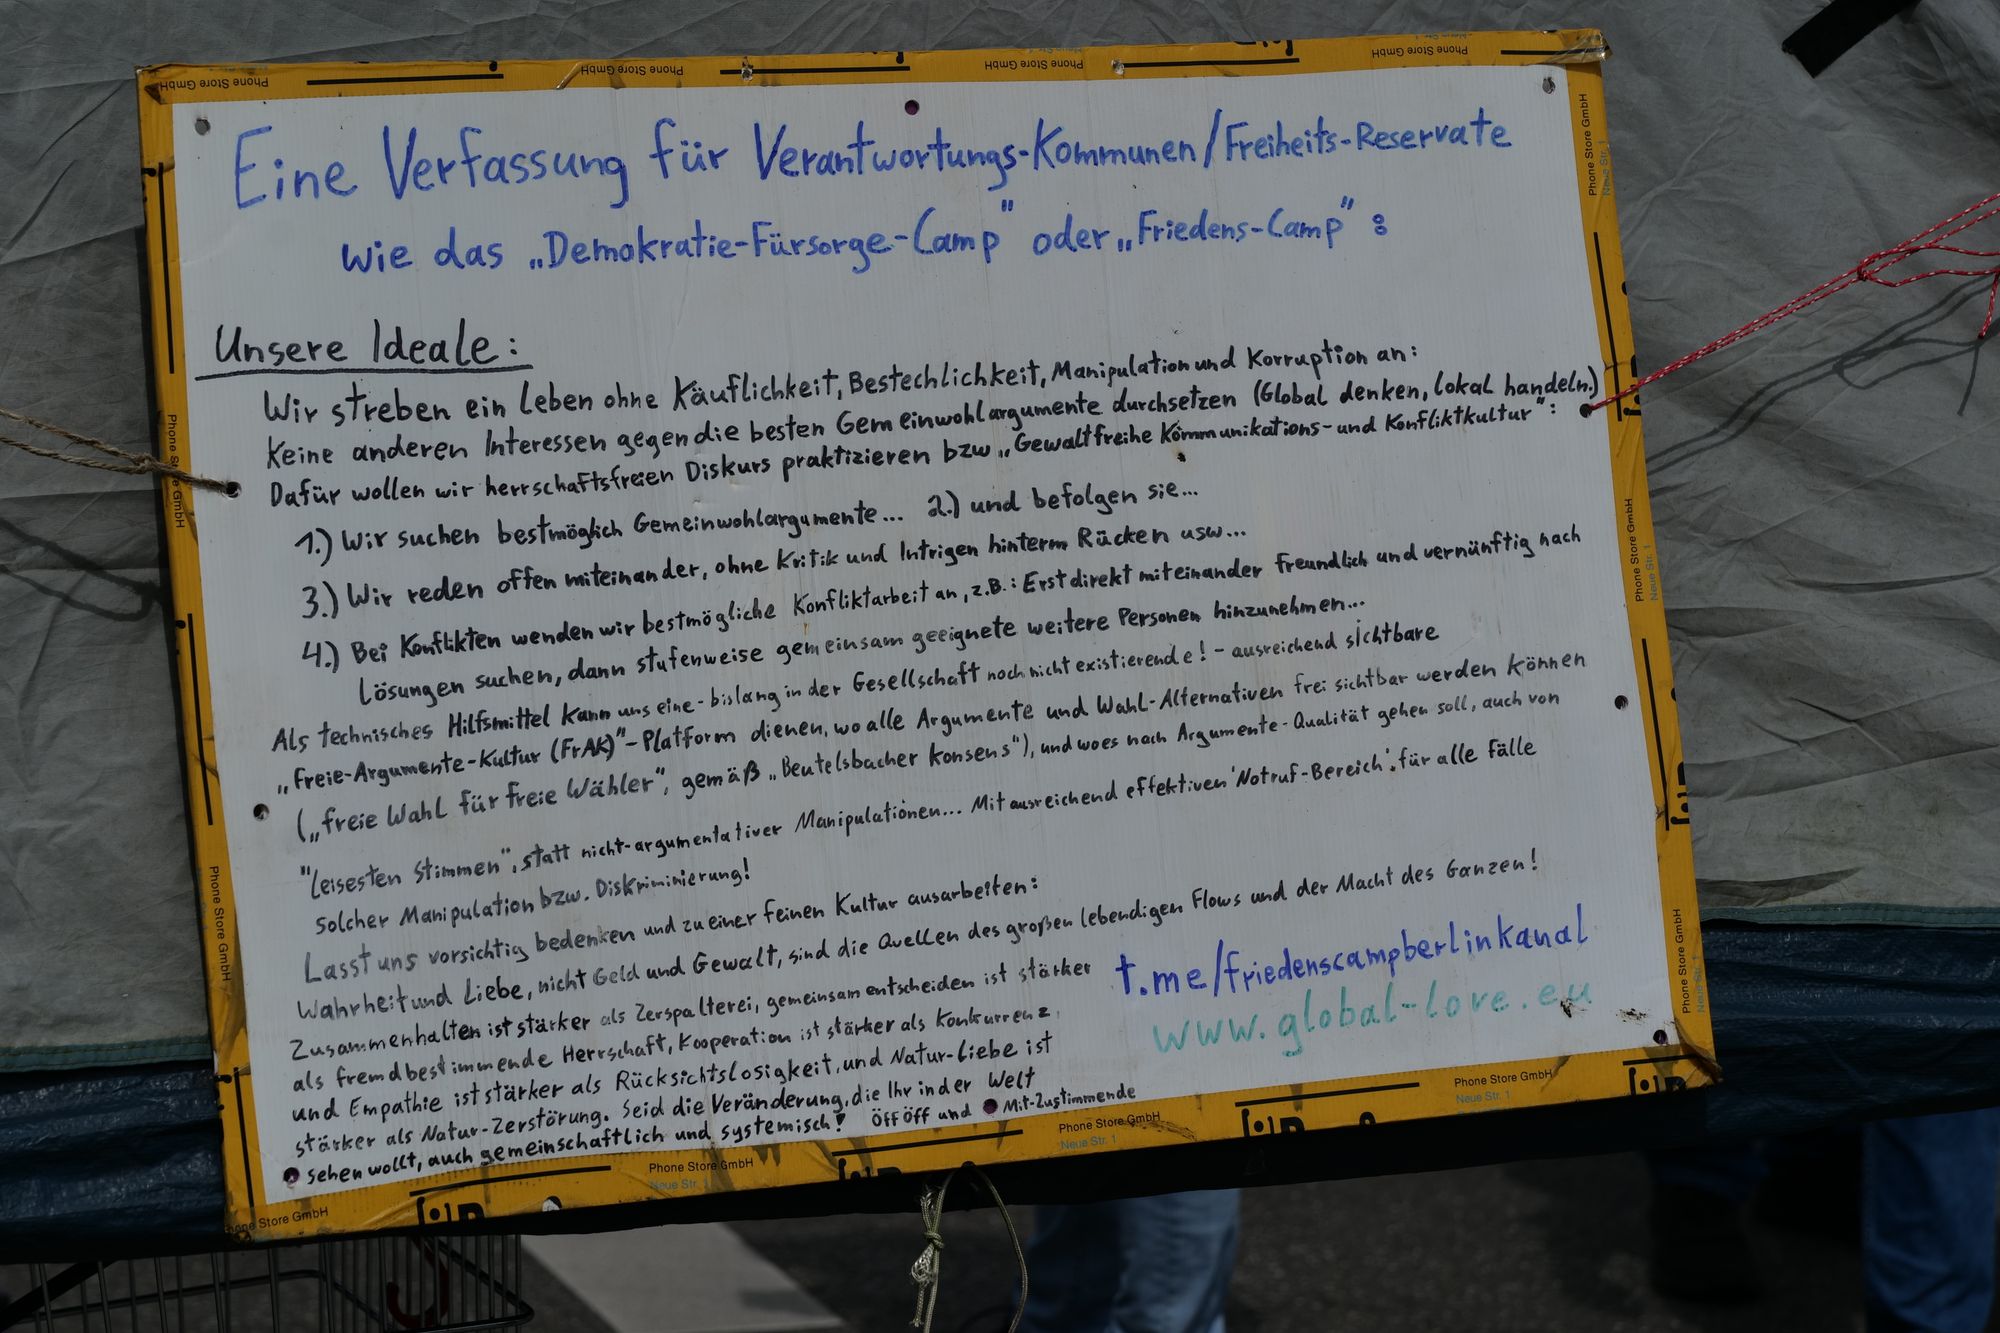 Eine Verfassung für Verantwortungs-Kommunen/Freiheits-Reservate
wie das „Demokratie-Fürsorge-Camp" oder „Friedens-Camp":
Unsere Ideale:
Wir streben ein Leben ohne Käuflichkeit, Bestechlichkeit, Manipulation und Korruption an:
Keine anderen Interessen gegen die besten Gemeinwohlargumente durchsetzen (Global denken, lokal handeln.)
Dafür wollen wir herrschaftsfreien Diskurs praktizieren bzw „Gewaltfreihe Kommunikations- und Konfliktkultur":
1.) Wir suchen bestmöglich Gemeinwohlargumente... 2.) und befolgen sie...
3.) Wir reden offen miteinander, ohne Kritik und Intrigen hinterm Rücken usw...
4.) Bei Konflikten wenden wir bestmögliche Konfliktarbeit an, z.B.: Erst direkt miteinander freundlich und vernünftig nach
Lösungen suchen, dann stufenweise gemeinsam geeignete weitere Personen hinzunehmen...
Als technisches Hilfsmittel kann uns eine - bislang in der Gesellschaft noch nicht existierende! - ausreichend sichtbare
„Freie-Argumente-Kultur (FrAK)"-Platform dienen, wo alle Argumente und Wahl-Alternativen frei sichtbar werden können
(„freie Wahl für freie Wähler", gemäß „Beutelsbacher Konsens"), und wo es nach Argumente-Qualität gehen soll, auch von
"leisesten Stimmen", statt nicht-argumentativer Manipulationen... Mit ausreichend effektiven 'Notruf-Bereich', für alle Fälle
solcher Manipulation bzw. Diskriminierung!
Lasst uns vorsichtig bedenken und zu einer feinen Kultur ausarbeiten:
Wahrheit und Liebe, nicht Geld und Gewalt, sind die Quellen des großen lebendigen Flows und der Macht des Ganzen!
Zusammenhalten ist stärker als Zerspalterei, gemeinsam entscheiden ist stärker
als fremdbestimmende Herrschaft, Kooperation ist stärker als Konkurrenz,
und Empathie ist stärker als Rücksichtslosigkeit, und Natur-Liebe ist
stärker als Natur-Zerstörung. Seid die Veränderung, die Ihr in der Welt
sehen wollt, auch gemeinschaftlich und systemisch! Öff Öff und Mit-Zustimmende
t.me/friedenscampberlinkanal
www.global-love.eu
Phone Store GmbH
Phone Store GmbH
Phone Store GmbH
Phone Store GmbH
Phone Store GmbH
Neue Str. 1
Phone Store GmbH
Neue Str. 1
Phone Store GmbH
Phone Store GmbH
Phone Store GmbH
Phone Store GmbH
Phone Store GmbH
Neue Str. 1
Phone Store GmbH
Neue Str. 1
Phone Store GmbH
Neue Str. 1